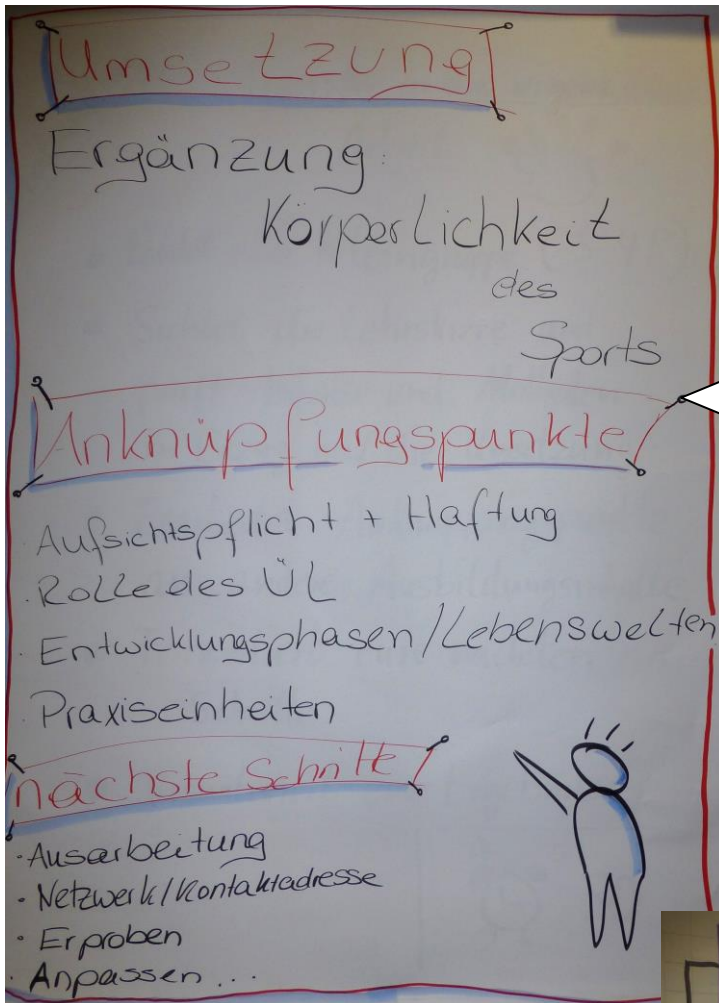 Umsetzung
Ergänzung:
Körperlichkeit
des
Sports
Anknüpfungspunkte
Aufsichtspflicht + Haftung
· Rolle des ÜL
· Entwicklungsphasen/Lebenswelten
· Praxiseinheiten
nächste Schritte
· Ausarbeitung
· Netzwerk/Kontaktadresse
· Erproben
· Anpassen...